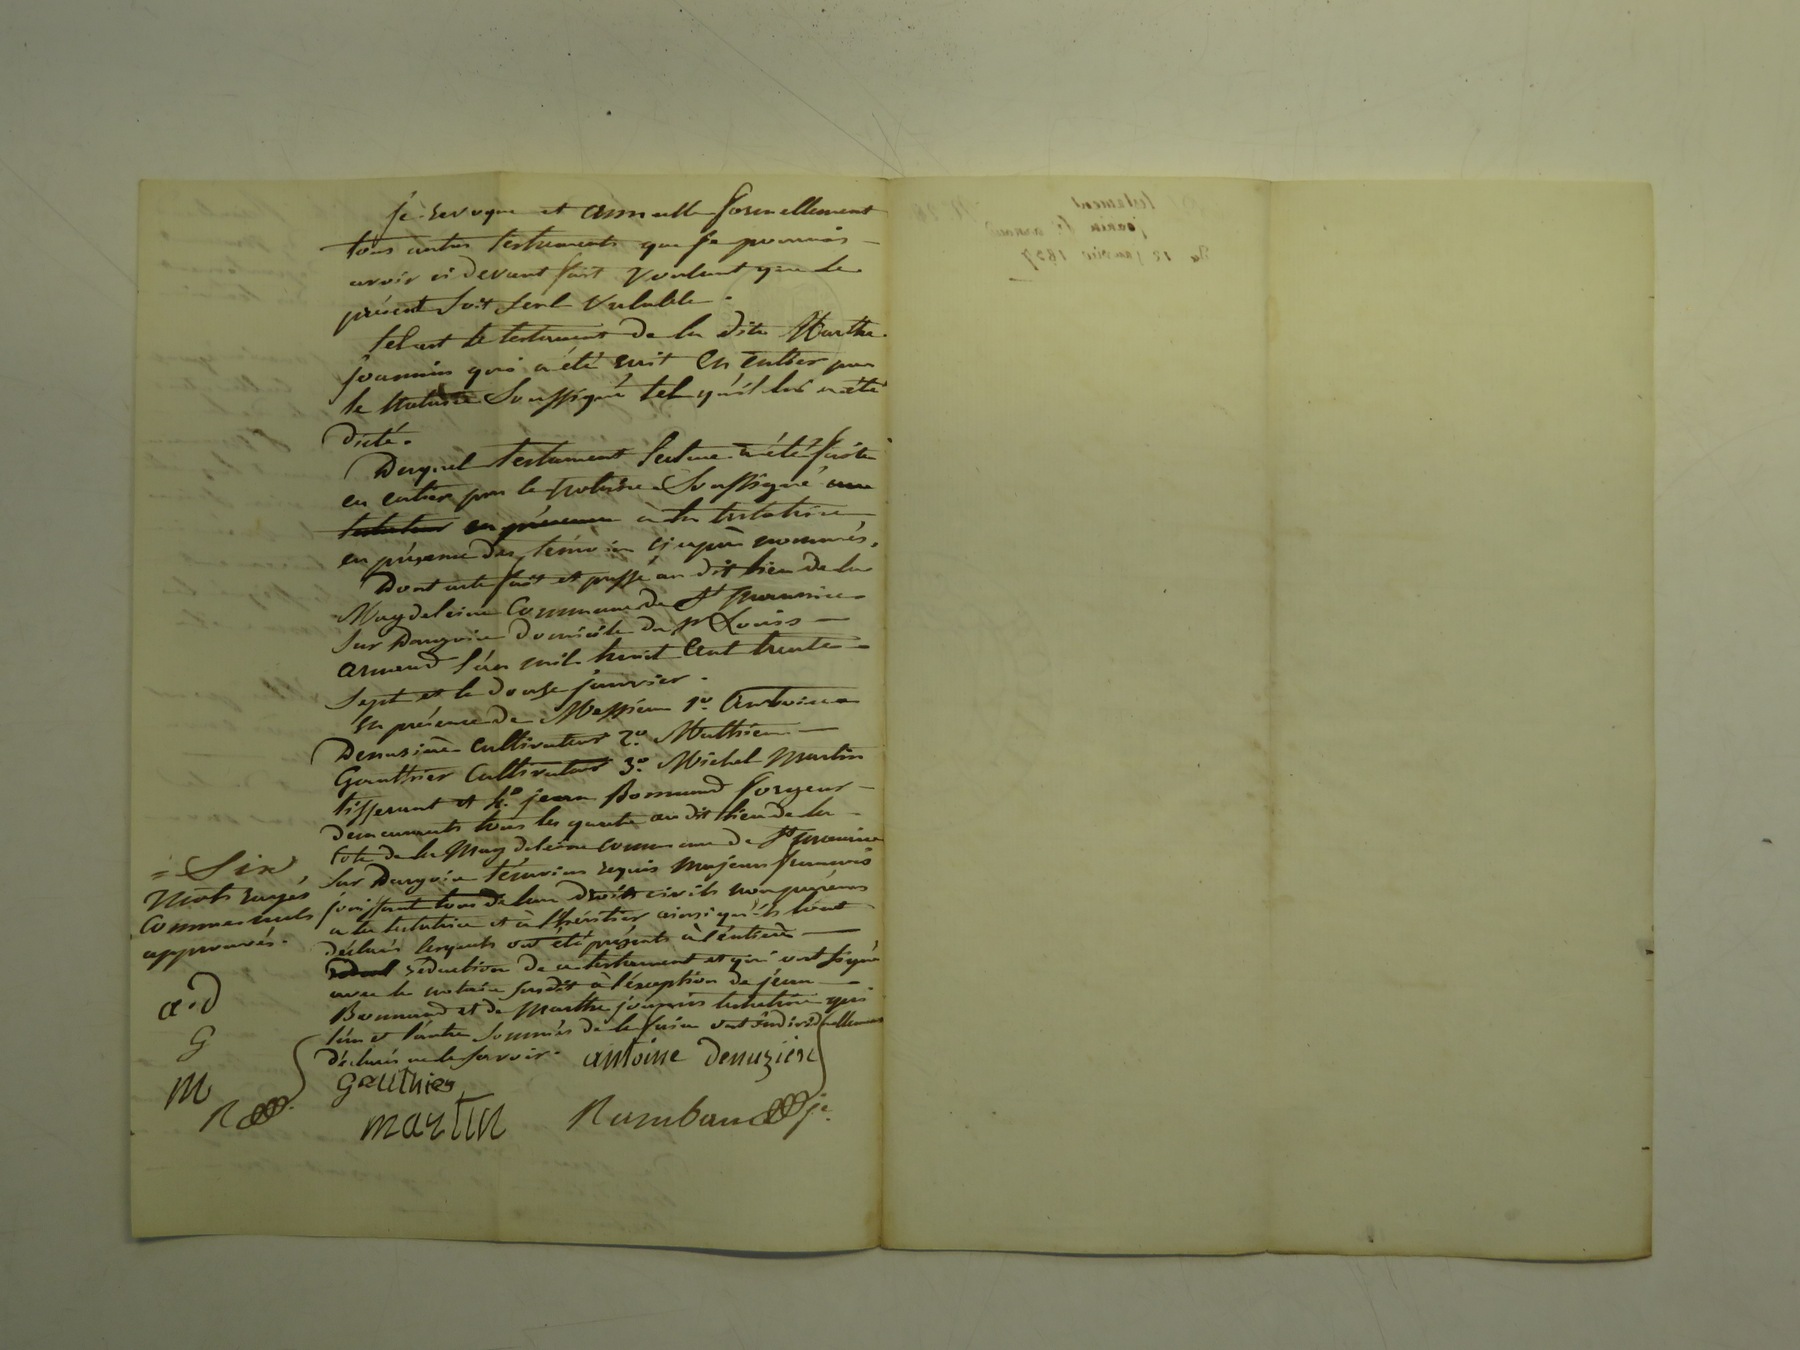 je revoque et annulle formellement
tous autres testaments que je pourrois
avoir ci devant fait voulant que le
présent soit seul valable.
tel est le testament de la dite Marthe
joannin qui a été écrit en entier par
le notaire soussigné tel qu'il lui a été
dicté.
Duquel testament lecture a été faite
en entier par le notaire soussigné
testateur en présence à la testatrice
en présence des témoins ci après nommés.
Dont acte fait et passé au dit lieu de la
Magdeleine Commune de St maurice
sur Dargoire domicile du Sr Louis
armand l'an mil huit cent trente
sept et le douze janvier.
En présence de Messieurs 1o. Antoine
Denuzière cultivateur 2o. Mathieu
Gauthier Cultivateur 3o. Michel Martin
tisserant et 4o. jean Bonnand forgeur
demeurants tous les quatre au dit lieu de la
cote de la Magdeleine commune de St maurice
sur Dargoire témoins requis majeurs francais
jouissant tous de leurs droits civils non parents
a la testatrice et à l'héritier ainsi qu'ils l'ont
déclaré lesquels ont été présents à l'entière
rédaction de ce testament et qui ont signé
avec le notaire susdit à l'exception de jean
Bonnand et de Marthe joannin testatrice qui
l'un et l'autre sommés de le faire ont individuellement
déclarés ne le savoir. antoine denuzière
gauthier
martin Rambaud je.
= Six
mots rayés
comme nuls
approuvés.
a.d
G
M
R
testament
joanin fe armand
Du 12 janvier 1837